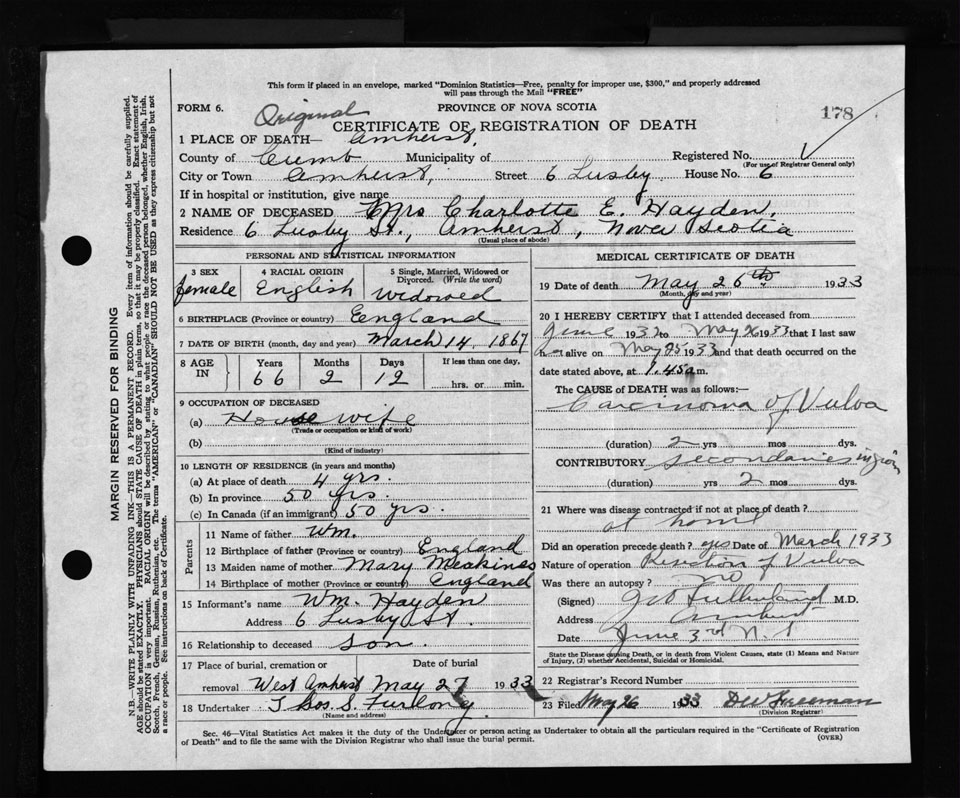 This form if placed in an envelope, marked "Dominion Statistics—Free, penalty for improper use, $300," and properly addressed
will pass through the Mail "FREE"
FORM 6.
PROVINCE OF NOVA SCOTIA
178
Original
CERTIFICATE OF REGISTRATION OF DEATH
1 PLACE OF DEATH— Amherst,
County of Cumb Municipality of Registered No.
(For use of Registrar General only)
City or Town Amherst, Street 6 Lusby House No. 6
If in hospital or institution, give name
2 NAME OF DECEASED Mrs Charlotte E. Hayden,
Residence 6 Lusby St., Amherst, Nova Scotia
(Usual place of abode)
PERSONAL AND STATISTICAL INFORMATION
3 SEX female
4 RACIAL ORIGIN English
5 Single, Married, Widowed or Divorced. (Write the word) Widowed
6 BIRTHPLACE (Province or country) England
7 DATE OF BIRTH (month, day and year) March 14, 1867
8 AGE IN Years 66 Months 2 Days 12 If less than one day. hrs. or min.
9 OCCUPATION OF DECEASED
(a) House wife
(Trade or occupation or kind of work)
(b)
(Kind of industry)
10 LENGTH OF RESIDENCE (in years and months)
(a) At place of death 4 yrs.
(b) In province 50 yrs.
(c) In Canada (if an immigrant) 50 yrs.
Parents
11 Name of father Wm.
12 Birthplace of father (Province or country) England
13 Maiden name of mother Mary Meakines
14 Birthplace of mother (Province or country) England
15 Informant's name Wm. Hayden
Address 6 Lusby St.
16 Relationship to deceased Son.
17 Place of burial, cremation or Date of burial
removal West Amherst May 27 1933
18 Undertaker Furlong
(Name and address)
MEDICAL CERTIFICATE OF DEATH
19 Date of death May 26th 1933
(Month, day and year)
20 I HEREBY CERTIFY that I attended deceased from
June 1932 to May 26 1933 that I last saw
her alive on May 25 1933 and that death occurred on the
date stated above, at 1.45 a.m.
The CAUSE of DEATH was as follows:—
Carcinoma of Vulva
(duration) 2 yrs mos dys.
CONTRIBUTORY secondaries in groin
(duration) 2 yrs mos dys.
21 Where was disease contracted if not at place of death?
at home
Did an operation precede death? yes Date of March 1933
Nature of operation Resection of Vulva
Was there an autopsy? no
(Signed) M.D.
Address Amherst
Date June 3rd
State the Disease causing Death, or in death from Violent Causes, state (1) Means and Nature
of Injury, (2) whether Accidental, Suicidal or Homicidal.
22 Registrar's Record Number
23 Filed May 26 1933 Freeman
(Division Registrar)
Sec. 46—Vital Statistics Act makes it the duty of the Undertaker or person acting as Undertaker to obtain all the particulars required in the "Certificate of Registration
of Death" and to file the same with the Division Registrar who shall issue the burial permit.
(OVER)
MARGIN RESERVED FOR BINDING
N.B.—WRITE PLAINLY WITH UNFADING INK—THIS IS A PERMANENT RECORD. Every item of information should be carefully supplied.
AGE should be stated EXACTLY. PHYSICIANS should STATE CAUSE OF DEATH in plain terms, so that it may be properly classified. Exact statement of
OCCUPATION is very important. RACIAL ORIGIN will be described by stating to what people or race the deceased person belonged, whether English, Irish,
Scotch, French, German, Russian, Ruthenian, etc. The terms "AMERICAN" or "CANADIAN" SHOULD NOT BE USED as they express citizenship but not
a race or people. See instructions on back of Certificate.